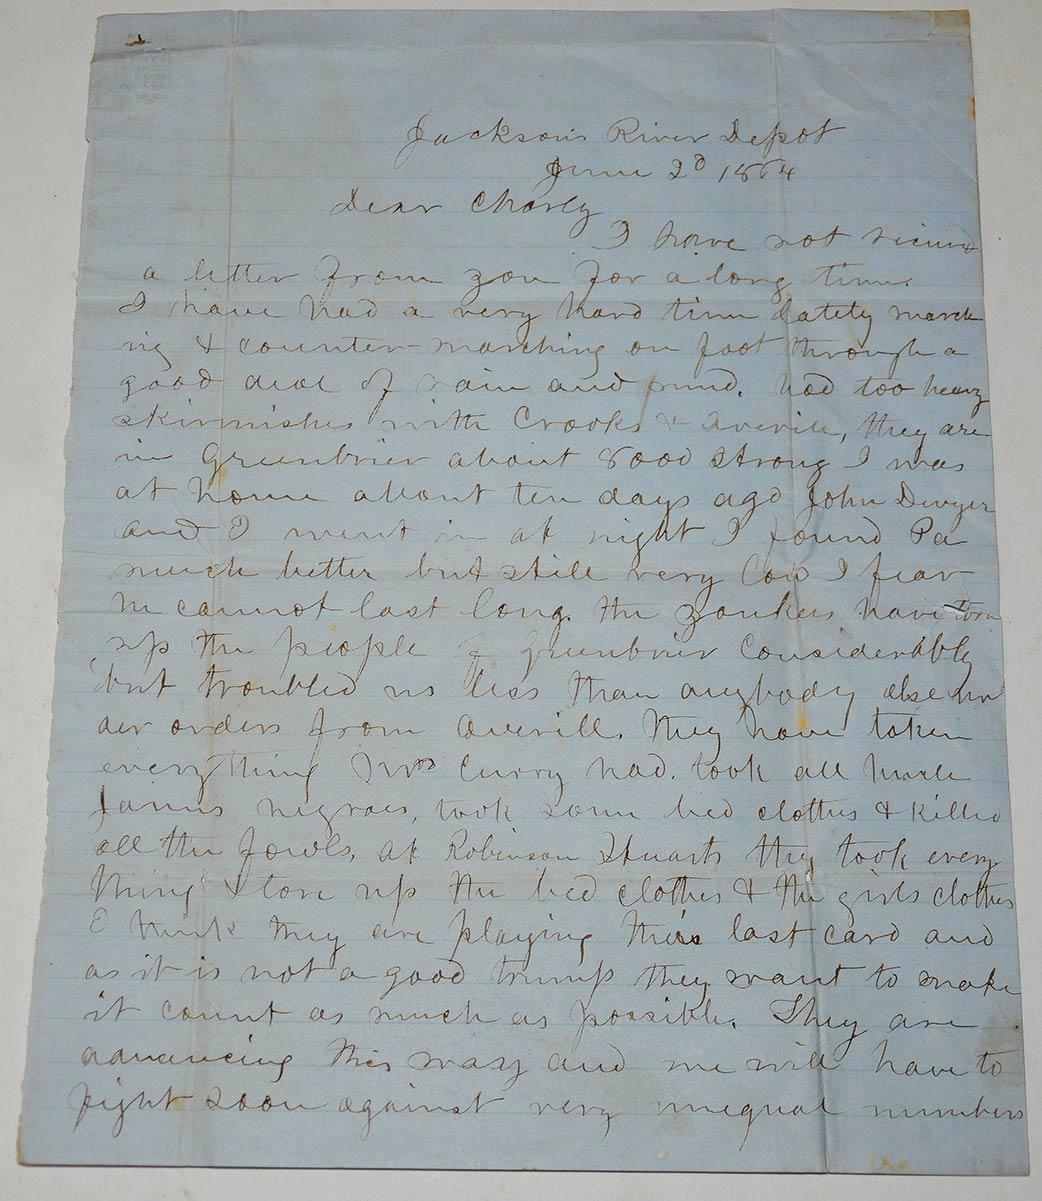 Jackson's River Depot
June 2d 1864
Dear Charly
I have not recieved
a letter from you for a long time.
I have had a very hard time lately march
ing & counter-marching on foot through a
good deal of rain and mud. had too heavy
skirmishes with Crooks & Averill, they are
in Greenbrier about 8000 strong I was
at home about ten days ago John Dwyer
and I went in at night I found Pa
much better but still very low I fear
he cannot last long. the yankees have torn
up the people of Greenbrier Considerably
but troubled us less than anybody else un
der orders from Averill. They have taken
everything Mrs Curry had. took all Uncle
James negroes, took some bed clothes & killed
all the fowls, at Robinson Stuarts they took every
thing & tore up the bed clothes & the girls clothes
I think they are playing their last card and
as it is not a good trump they want to make
it count as much as possible. They are
advancing this way and we will have to
fight soon against very unequal numbers